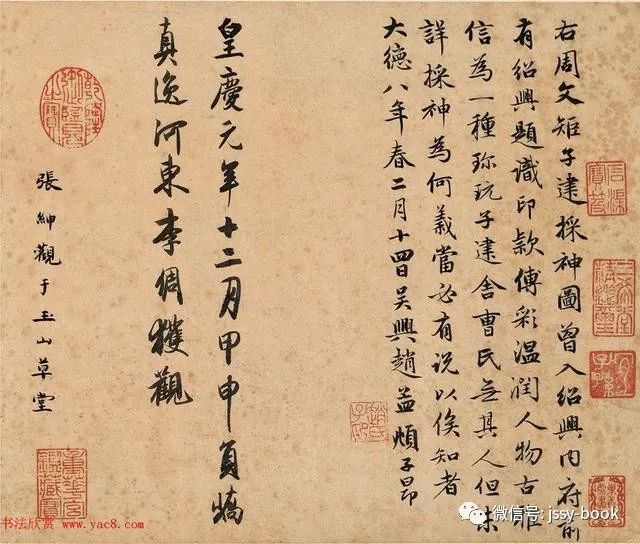 右周文矩子建採神圖曾入紹興內府前
有紹興題識印款傅彩溫潤人物古雅
信為一種珎玩子建舍曹氏無其人但未
詳採神為何義當必有說以俟知者
大德八年春二月十四日吳興趙孟頫子昂
皇慶元年十二月甲申員嶠
真逸河東李倜獲觀
張紳觀于玉山草堂
石渠寶笈
三希堂精鑑璽
宜子孫
趙氏子昂
乾隆御覽之寶
微信号: jssy-book
书法欣赏 www.yac8.com